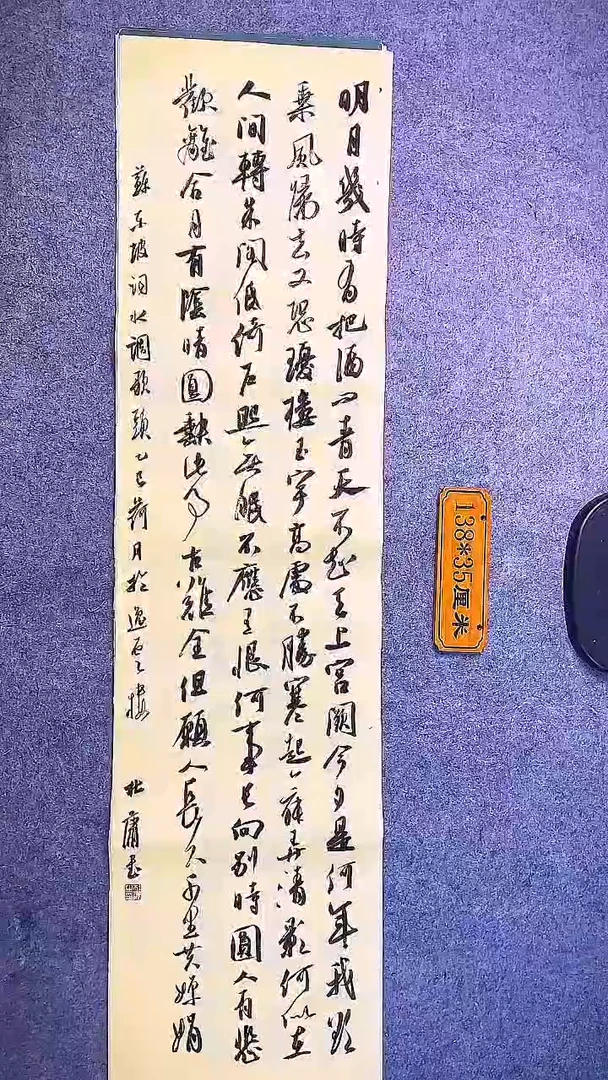 明月幾時有把酒問青天不知天上宮闕今夕是何年我欲
乘風歸去又恐瓊樓玉宇高處不勝寒起舞弄清影何似在
人間轉朱閣低綺戶照無眠不應有恨何事長向別時圓人有悲
歡離合月有陰晴圓缺此事古難全但願人長久千里共嬋娟
蘇東坡詞水調歌頭乙巳荷月於逸樓
杜庸書
138*35厘米